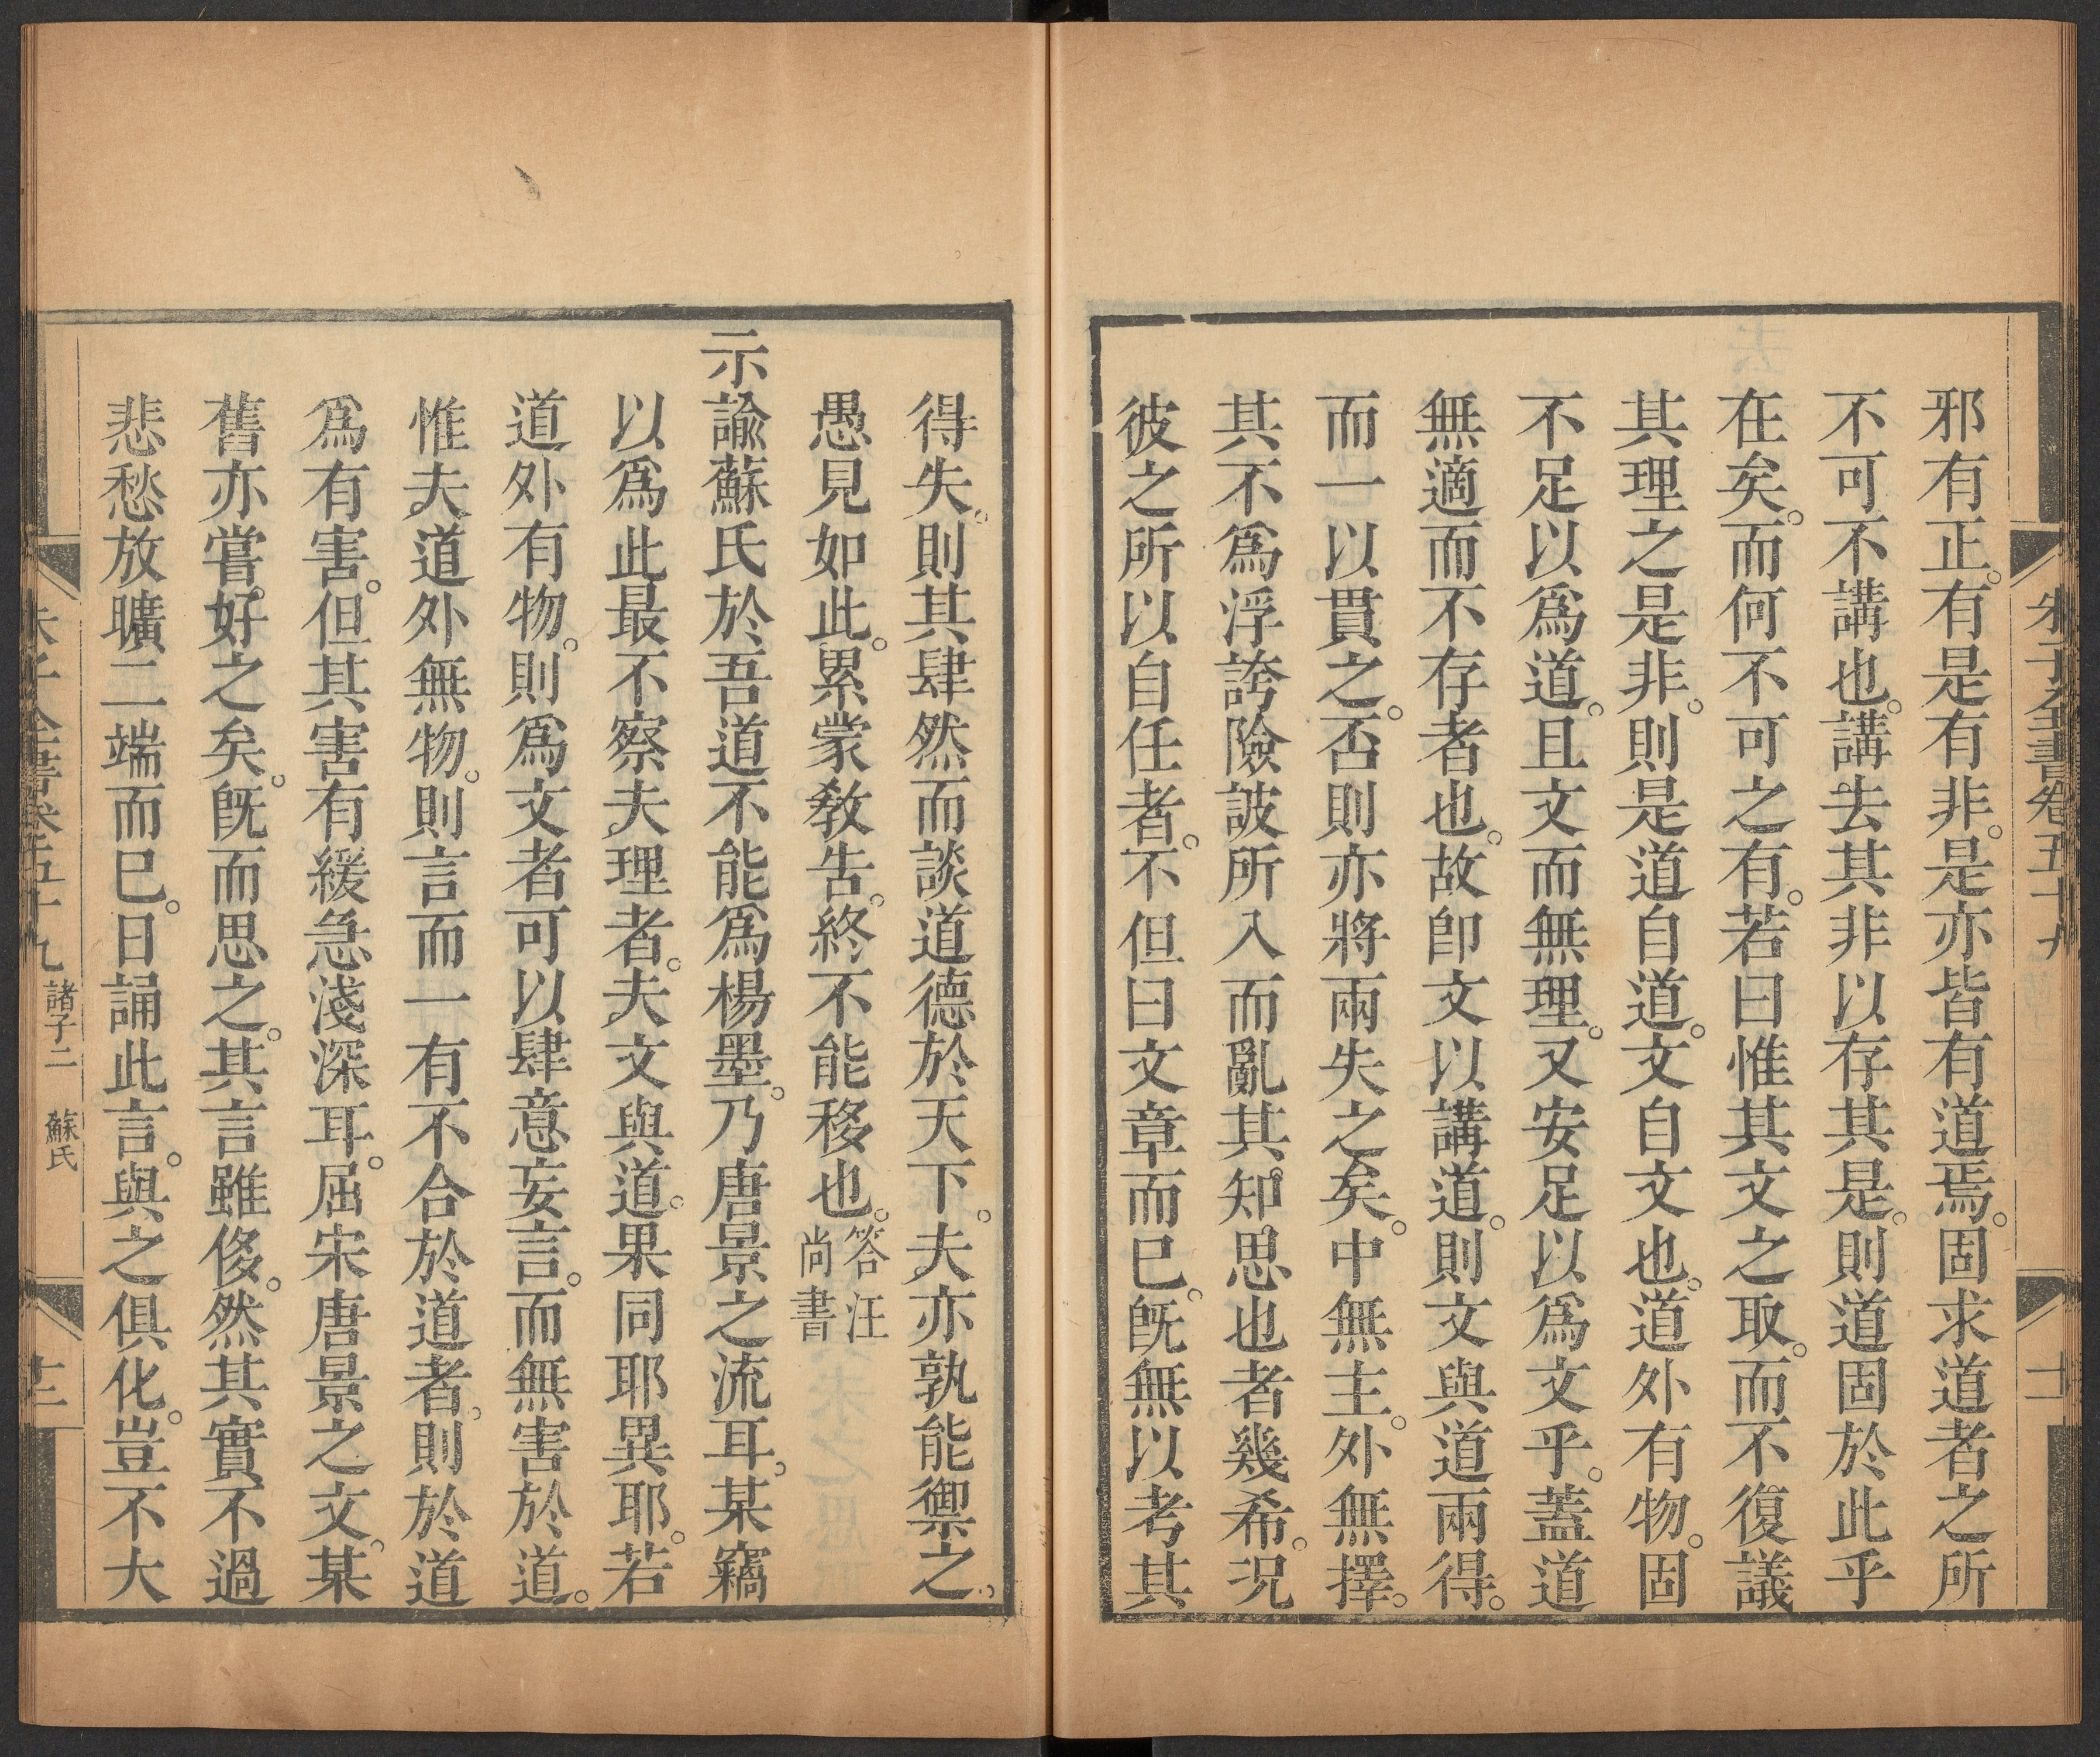 朱子全書卷五十九
十一
邪有正。有是有非。是亦皆有道焉。固求道者之所
不可不講也。講去其非以存其是。則道固於此乎
在矣。而何不可之有。若曰惟其文之取。而不復議
其理之是非。則是道自道。文自文也。道外有物。固
不足以爲道。且文而無理。又安足以爲文乎。蓋道
無適而不存者也。故卽文以講道。則文與道兩得。
而一以貫之。否則亦將兩失之矣。中無主。外無擇。
其不爲浮誇險詖所入而亂其知思也者幾希。况
彼之所以自任者。不但曰文章而已。旣無以考其
得失。則其肆然而談道德於天下。夫亦孰能禦之。
愚見如此。累蒙敎告。終不能移也。答汪尚書
示諭蘇氏於吾道不能爲楊墨。乃唐景之流耳。某竊
以爲此最不察夫理者。夫文與道。果同耶異耶。若
道外有物。則爲文者可以肆意妄言。而無害於道。
惟夫道外無物。則言而一有不合於道者。則於道
爲有害。但其害有緩急淺深耳。屈宋唐景之文。某
舊亦嘗好之矣。旣而思之。其言雖侈。然其實不過
悲愁放曠二端而已。日誦此言。與之俱化。豈不大
朱子全書卷五十九
諸子二 蘇氏
十二